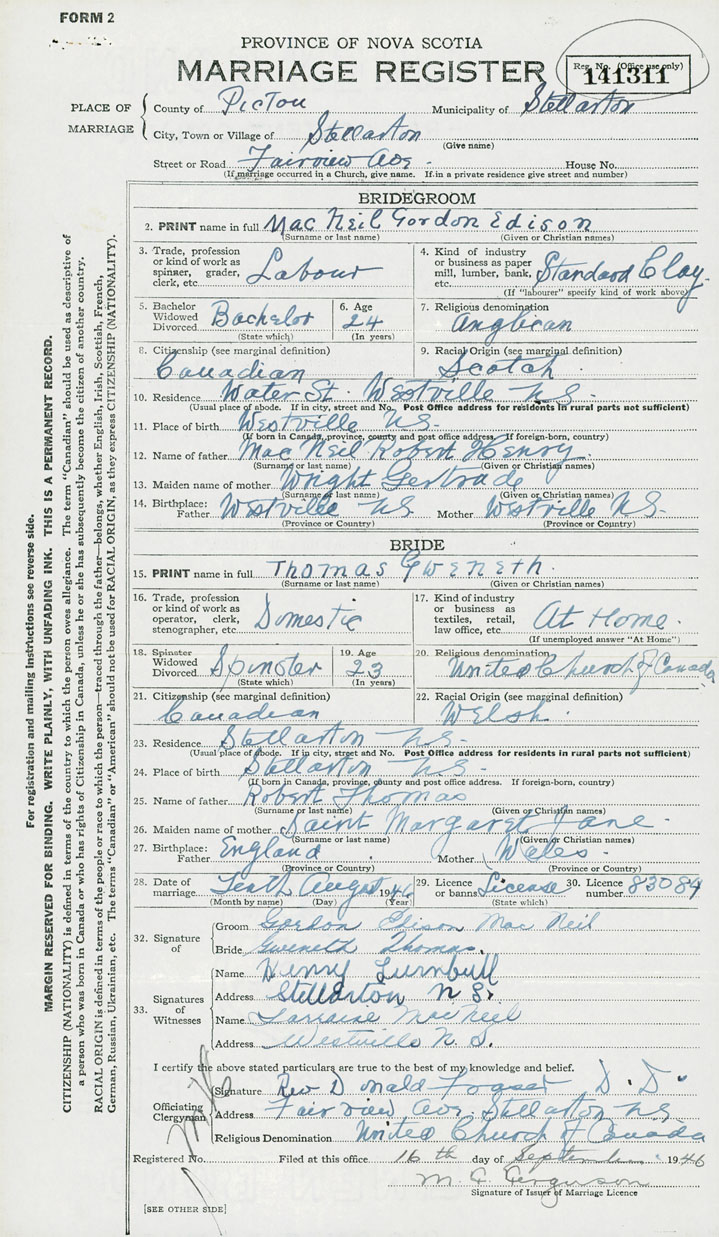 FORM 2
PROVINCE OF NOVA SCOTIA
MARRIAGE REGISTER
Reg. No. (Office use only)
141311
PLACE OF MARRIAGE
County of Pictou Municipality of Stellarton
City, Town or Village of Stellarton
(Give name)
Street or Road Fairview Ave. House No.
(If marriage occurred in a Church, give name. If in a private residence give street and number)
BRIDEGROOM
2. PRINT name in full Mac Neil Gordon Edison
(Surname or last name) (Given or Christian names)
3. Trade, profession or kind of work as spinner, grader, clerk, etc. Labour
4. Kind of industry or business as paper mill, lumber, bank, etc. Standard Clay.
(If "labourer" specify kind of work above)
5. Bachelor Widowed Divorced Bachelor
(State which)
6. Age 24
(In years)
7. Religious denomination Anglican
8. Citizenship (see marginal definition) Canadian
9. Racial Origin (see marginal definition) Scotch
10. Residence Water St. Westville N.S.
(Usual place of abode. If in city, street and No. Post Office address for residents in rural parts not sufficient)
11. Place of birth Westville N.S.
(If born in Canada, province, county and post office address. If foreign-born, country)
12. Name of father Mac Neil Robert Henry.
(Surname or last name) (Given or Christian names)
13. Maiden name of mother Wright Gertrude
(Surname or last name) (Given or Christian names)
14. Birthplace: Father Westville N.S. Mother Westville N.S.
(Province or Country) (Province or Country)
BRIDE
15. PRINT name in full Thomas Gweneth.
(Surname or last name) (Given or Christian names)
16. Trade, profession or kind of work as operator, clerk, stenographer, etc. Domestic
17. Kind of industry or business as textiles, retail, law office, etc. At Home.
(If unemployed answer "At Home")
18. Spinster Widowed Divorced Spinster
(State which)
19. Age 23
(In years)
20. Religious denomination United Church of Canada
21. Citizenship (see marginal definition) Canadian
22. Racial Origin (see marginal definition) Welsh.
23. Residence Stellarton N.S.
(Usual place of abode. If in city, street and No. Post Office address for residents in rural parts not sufficient)
24. Place of birth Stellarton N.S.
(If born in Canada, province, county and post office address. If foreign-born, country)
25. Name of father Robert Thomas
(Surname or last name) (Given or Christian names)
26. Maiden name of mother Saint Margaret Jane.
(Surname or last name) (Given or Christian names)
27. Birthplace: Father England Mother Wales
(Province or Country) (Province or Country)
28. Date of marriage Tenth August 1946
(Month by name) (Day) (Year)
29. Licence or banns License
(State which)
30. Licence number 83084
32. Signature of
Groom Gordon Edison Mac Neil
Bride Gweneth Thomas.
33. Signatures of Witnesses
Name Henry Turnbull
Address Stellarton N S.
Name Larraine MacNeil
Address Westville N. S.
I certify the above stated particulars are true to the best of my knowledge and belief.
Officiating Clergyman
Signature Rev D nald Fraser D.D.
Address Fairview Ave. Stellarton N.S.
Religious Denomination United Church of Canada
Registered No. Filed at this office 16 th day of September 1946
M. C. Ferguson
Signature of Issuer of Marriage Licence
[SEE OTHER SIDE]
For registration and mailing instructions see reverse side.
MARGIN RESERVED FOR BINDING. WRITE PLAINLY, WITH UNFADING INK. THIS IS A PERMANENT RECORD.
CITIZENSHIP (NATIONALITY) is defined in terms of the country to which the person owes allegiance. The term "Canadian" should be used as descriptive of
a person who was born in Canada or who has rights of Citizenship in Canada, unless he or she has subsequently become the citizen of another country.
RACIAL ORIGIN is defined in terms of the people or race to which the person—traced through the father—belongs, whether English, Irish, Scottish, French,
German, Russian, Ukrainian, etc. The terms "Canadian" or "American" should not be used for RACIAL ORIGIN, as they express CITIZENSHIP (NATIONALITY).